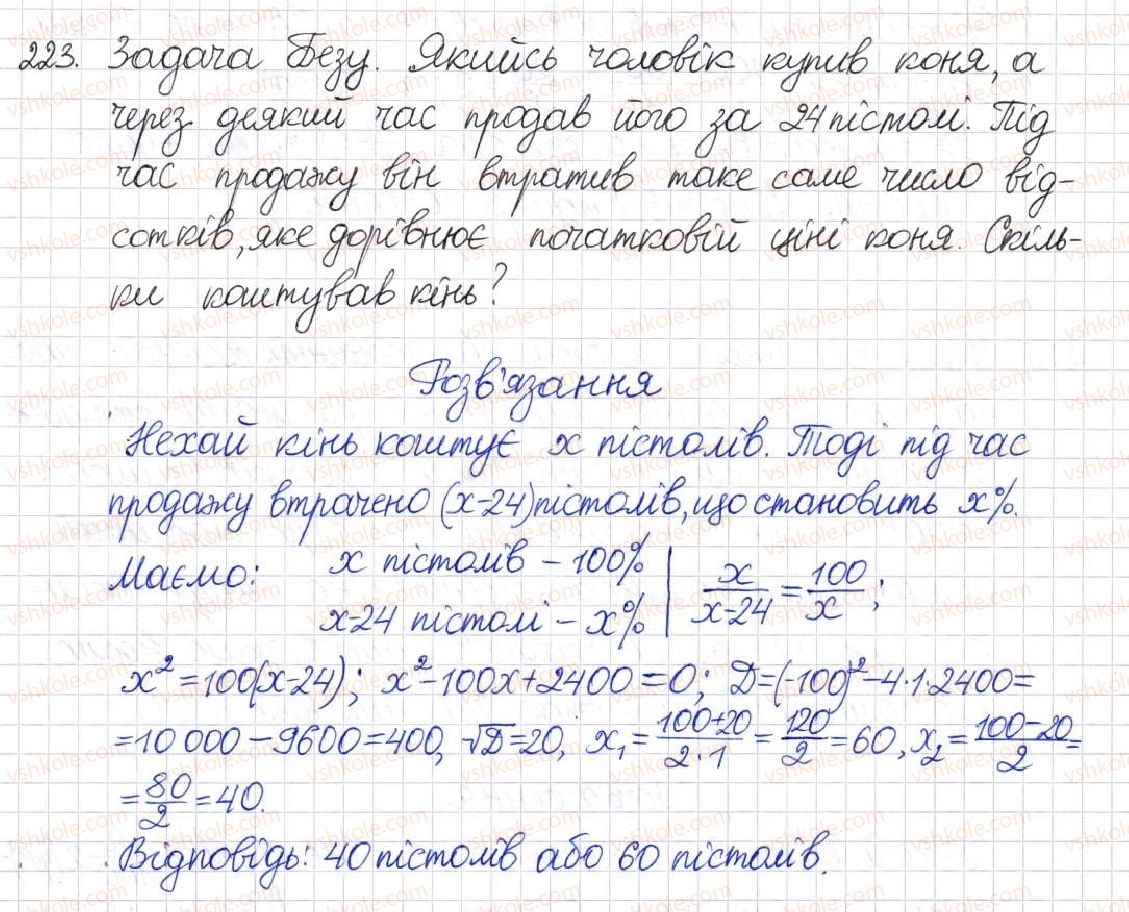 223. Задача Безу. Якийсь чоловік купив коня, а
через деякий час продав його за 24 пістолі. Під
час продажу він втратив таке саме число від-
сотків, яке дорівнює початковій ціні коня. Скіль-
ки коштував кінь?
Розв'язання
Нехай кінь коштує x пістолів. Тоді під час
продажу втрачено (x-24) пістолів, що становить x%.
Маємо: x пістолів – 100% | x/(x-24) = 100/x;
x-24 пістолі – x%
x² = 100(x-24); x² - 100x + 2400 = 0; D = (-100)² - 4·1·2400 =
= 10 000 - 9600 = 400, √D = 20, x₁ = (100+20)/(2·1) = 120/2 = 60, x₂ = (100-20)/2 =
= 80/2 = 40.
Відповідь: 40 пістолів або 60 пістолів.
vshkole.com